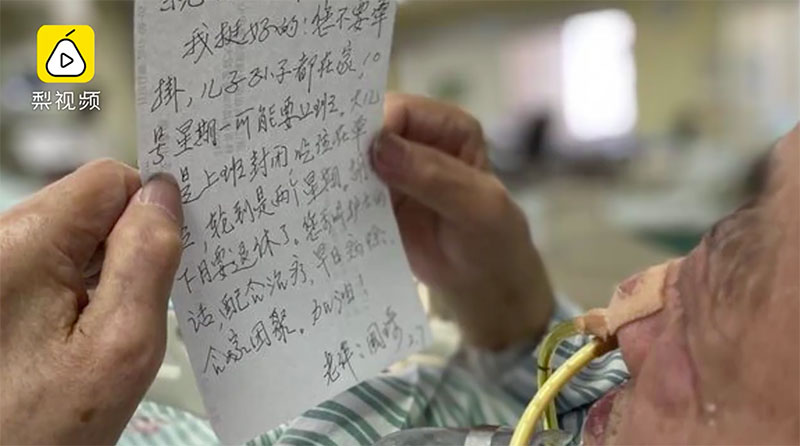 梨视频
我挺好的！您不要牵
挂，儿子孙子都在家，10
号星期一可能要上班。大儿
是上班封闭吃住在单
位，轮到是两个星期。
下月要退休了。您听
话，配合治疗，早日病除，
合家团聚。加油！
老伴：国
2.7